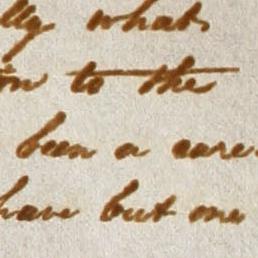 lly what
to the
been a care
have but one